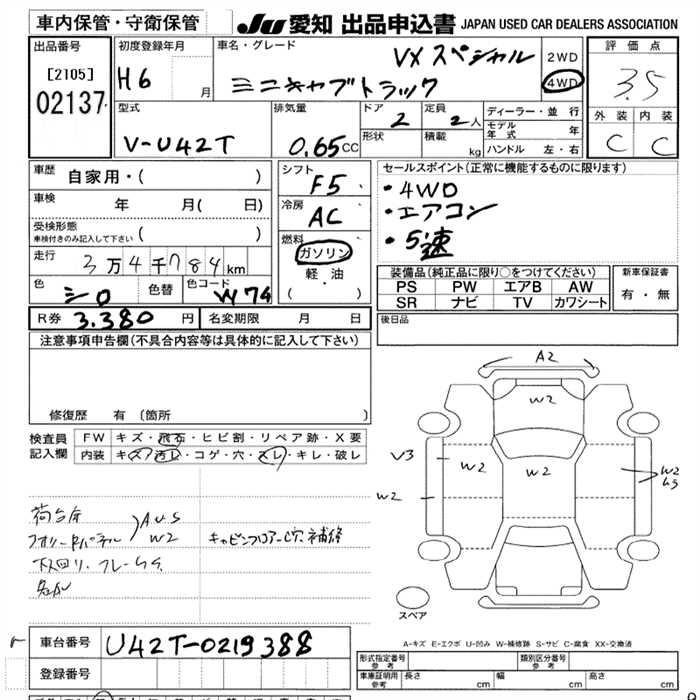 車内保管・守衛保管
JU 愛知 出品申込書 JAPAN USED CAR DEALERS ASSOCIATION
出品番号
[2105]
02137
初度登録年月
H6 月
車名・グレード
VXスペシャル
ミニキャブトラック
2WD
4WD
評価点
3.5
外装 内装
C C
型式
V-U42T
排気量
0.65cc
ドア
2
形状
定員
2人
積載 kg
ディーラー・並行
モデル年式 年
ハンドル 左・右
車歴 自家用・( )
車検 年 月( 日)
受検形態
車検付きのみ記入して下さい ( )
走行 3万4千784km
色 シロ 色替 色コード W74
シフト
F5
冷房
AC
燃料
ガソリン
軽・油
( ・ )
セールスポイント(正常に機能するものに限ります)
・4WD
・エアコン
・5速
装備品(純正品に限り○をつけてください)
PS PW エアB AW
SR ナビ TV カワシート
新車保証書
有・無
R券 3.380 円 名変期限 月 日
後日品
注意事項申告欄(不具合内容等は具体的に記入して下さい)
修復歴 有(箇所 )
検査員記入欄
FW キズ・飛石・ヒビ割・リペア跡・X要
内装 キズ・汚レ・コゲ・穴・スレ・キレ・破レ
A2
W2
V3
W2
W2
W2
W2
荷台
AUS
W2
キャビンフロアー穴補修
スペア
A-キズ E-エクボ U-凹み W-補修跡 S-サビ C-腐食 XX-交換済
車台番号 U42T-0219388
登録番号
形式指定番号 参考
類別区分番号 参考
車庫証明用 参考 長さ cm 幅 cm 高さ cm